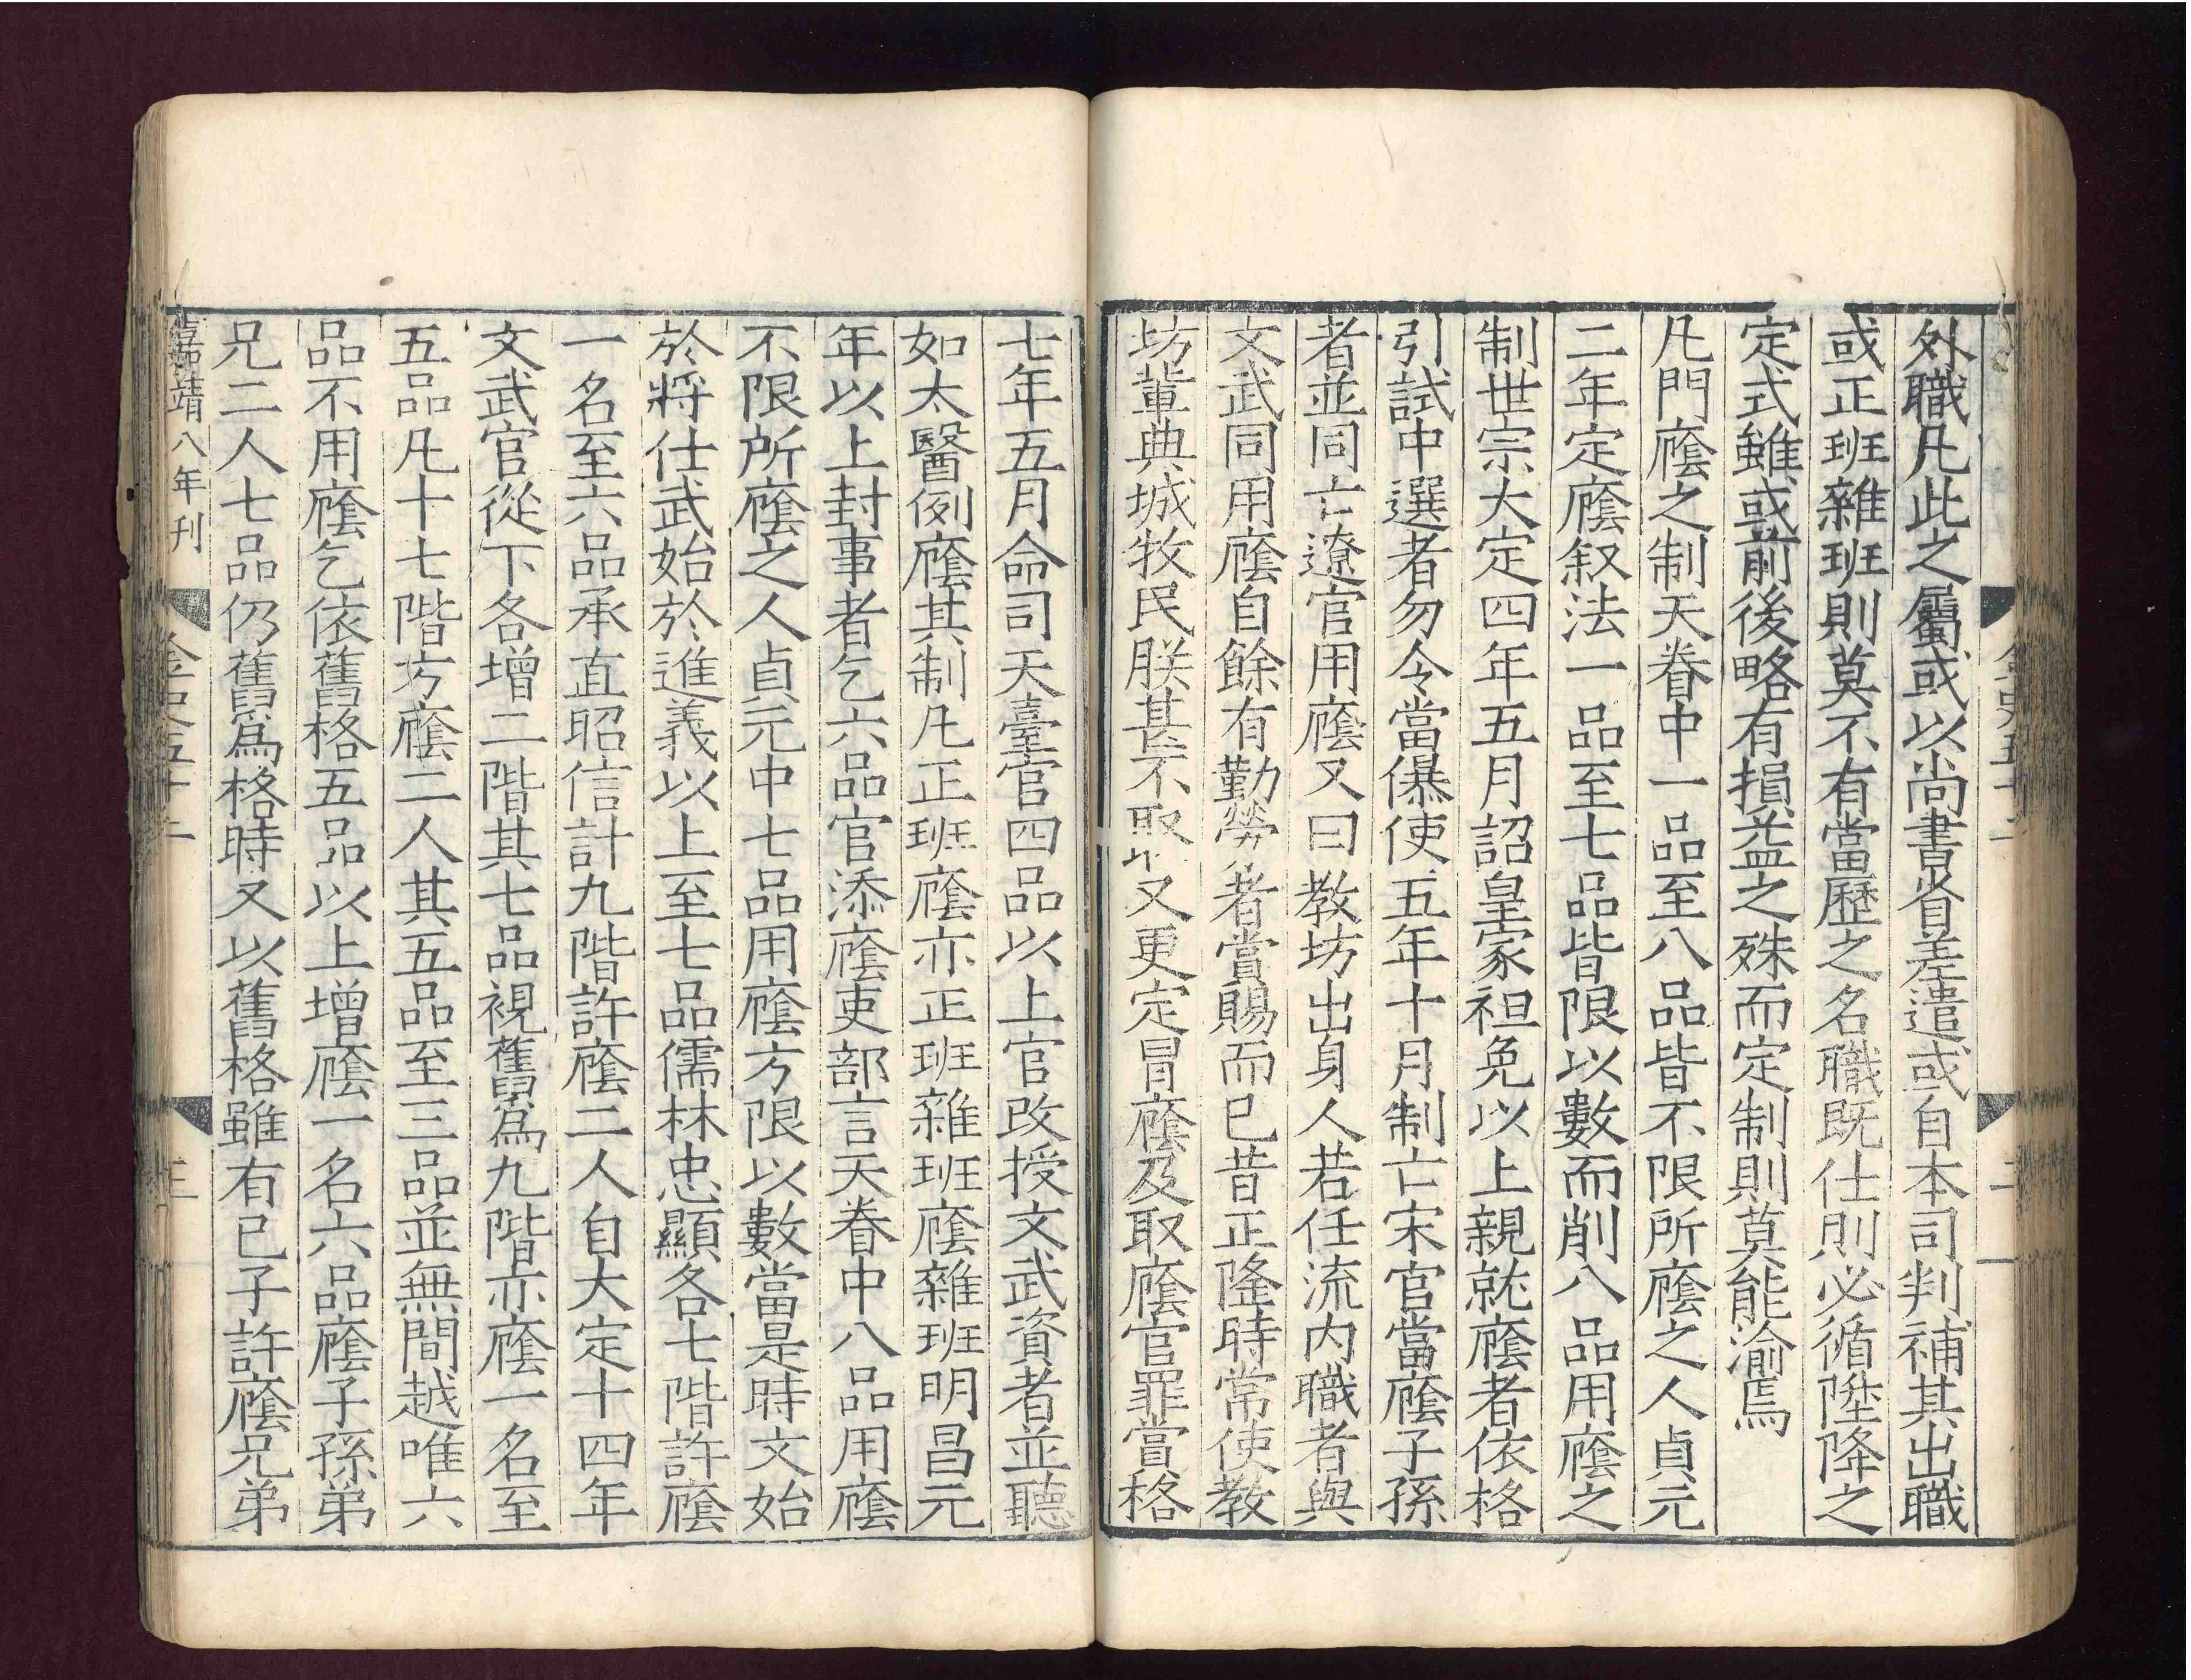 外職凡此之屬或以尚書省差遣或自本司判補其出職
或正班雜班則莫不有當歷之名職既仕則必循陞降之
定式雖或前後略有損益之殊而定制則莫能渝焉
凡門廕之制天眷中一品至八品皆不限所廕之人貞元
二年定廕叙法一品至七品皆限以數而削八品用廕之
制世宗大定四年五月詔皇家袒免以上親就廕者依格
引試中選者勿令當儤使五年十月制亡宋官當廕子孫
者並同亡遼官用廕又曰教坊出身人若任流内職者與
文武同用廕自餘有勤勞者賞賜而已昔正隆時常使教
坊輩典城牧民朕甚不取又更定冒廕及取廕官罪賞格
七年五月命司天臺官四品以上官改授文武資者並聽
如太醫例廕其制凡正班廕亦正班雜班廕雜班明昌元
年以上封事者乞六品官添廕吏部言天眷中八品用廕
不限所廕之人貞元中七品用廕方限以數當是時文始
於將仕武始於進義以上至七品儒林忠顯各七階許廕
一名至六品承直昭信計九階許廕二人自大定十四年
文武官從下各增二階其七品視舊爲九階亦廕一名至
五品凡十七階方廕二人其五品至三品並無間越唯六
品不用廕乞依舊格五品以上增廕一名六品廕子孫弟
兄二人七品仍舊爲格時又以舊格雖有已子許廕兄弟
嘉靖八年刊 金史五十二 三